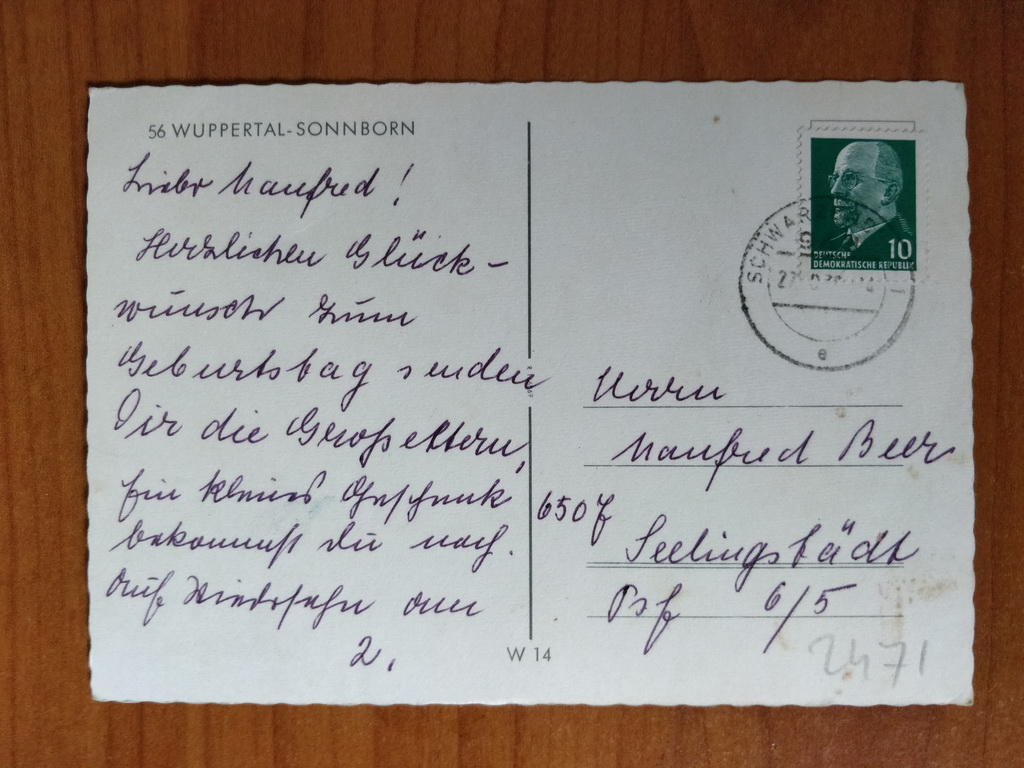 56 WUPPERTAL-SONNBORN
Lieber Manfred!
Herzlichen Glück-
wunsch zum
Geburtstag senden
Dir die Großeltern,
Ein kleines Geschenk
bekommst Du noch.
Auf Wiedersehn am
2.
W 14
10
DEUTSCHE
DEMOKRATISCHE REPUBLIK
e
Herrn
Manfred Beer
6507
Seelingstädt
Psf 6/5
2471